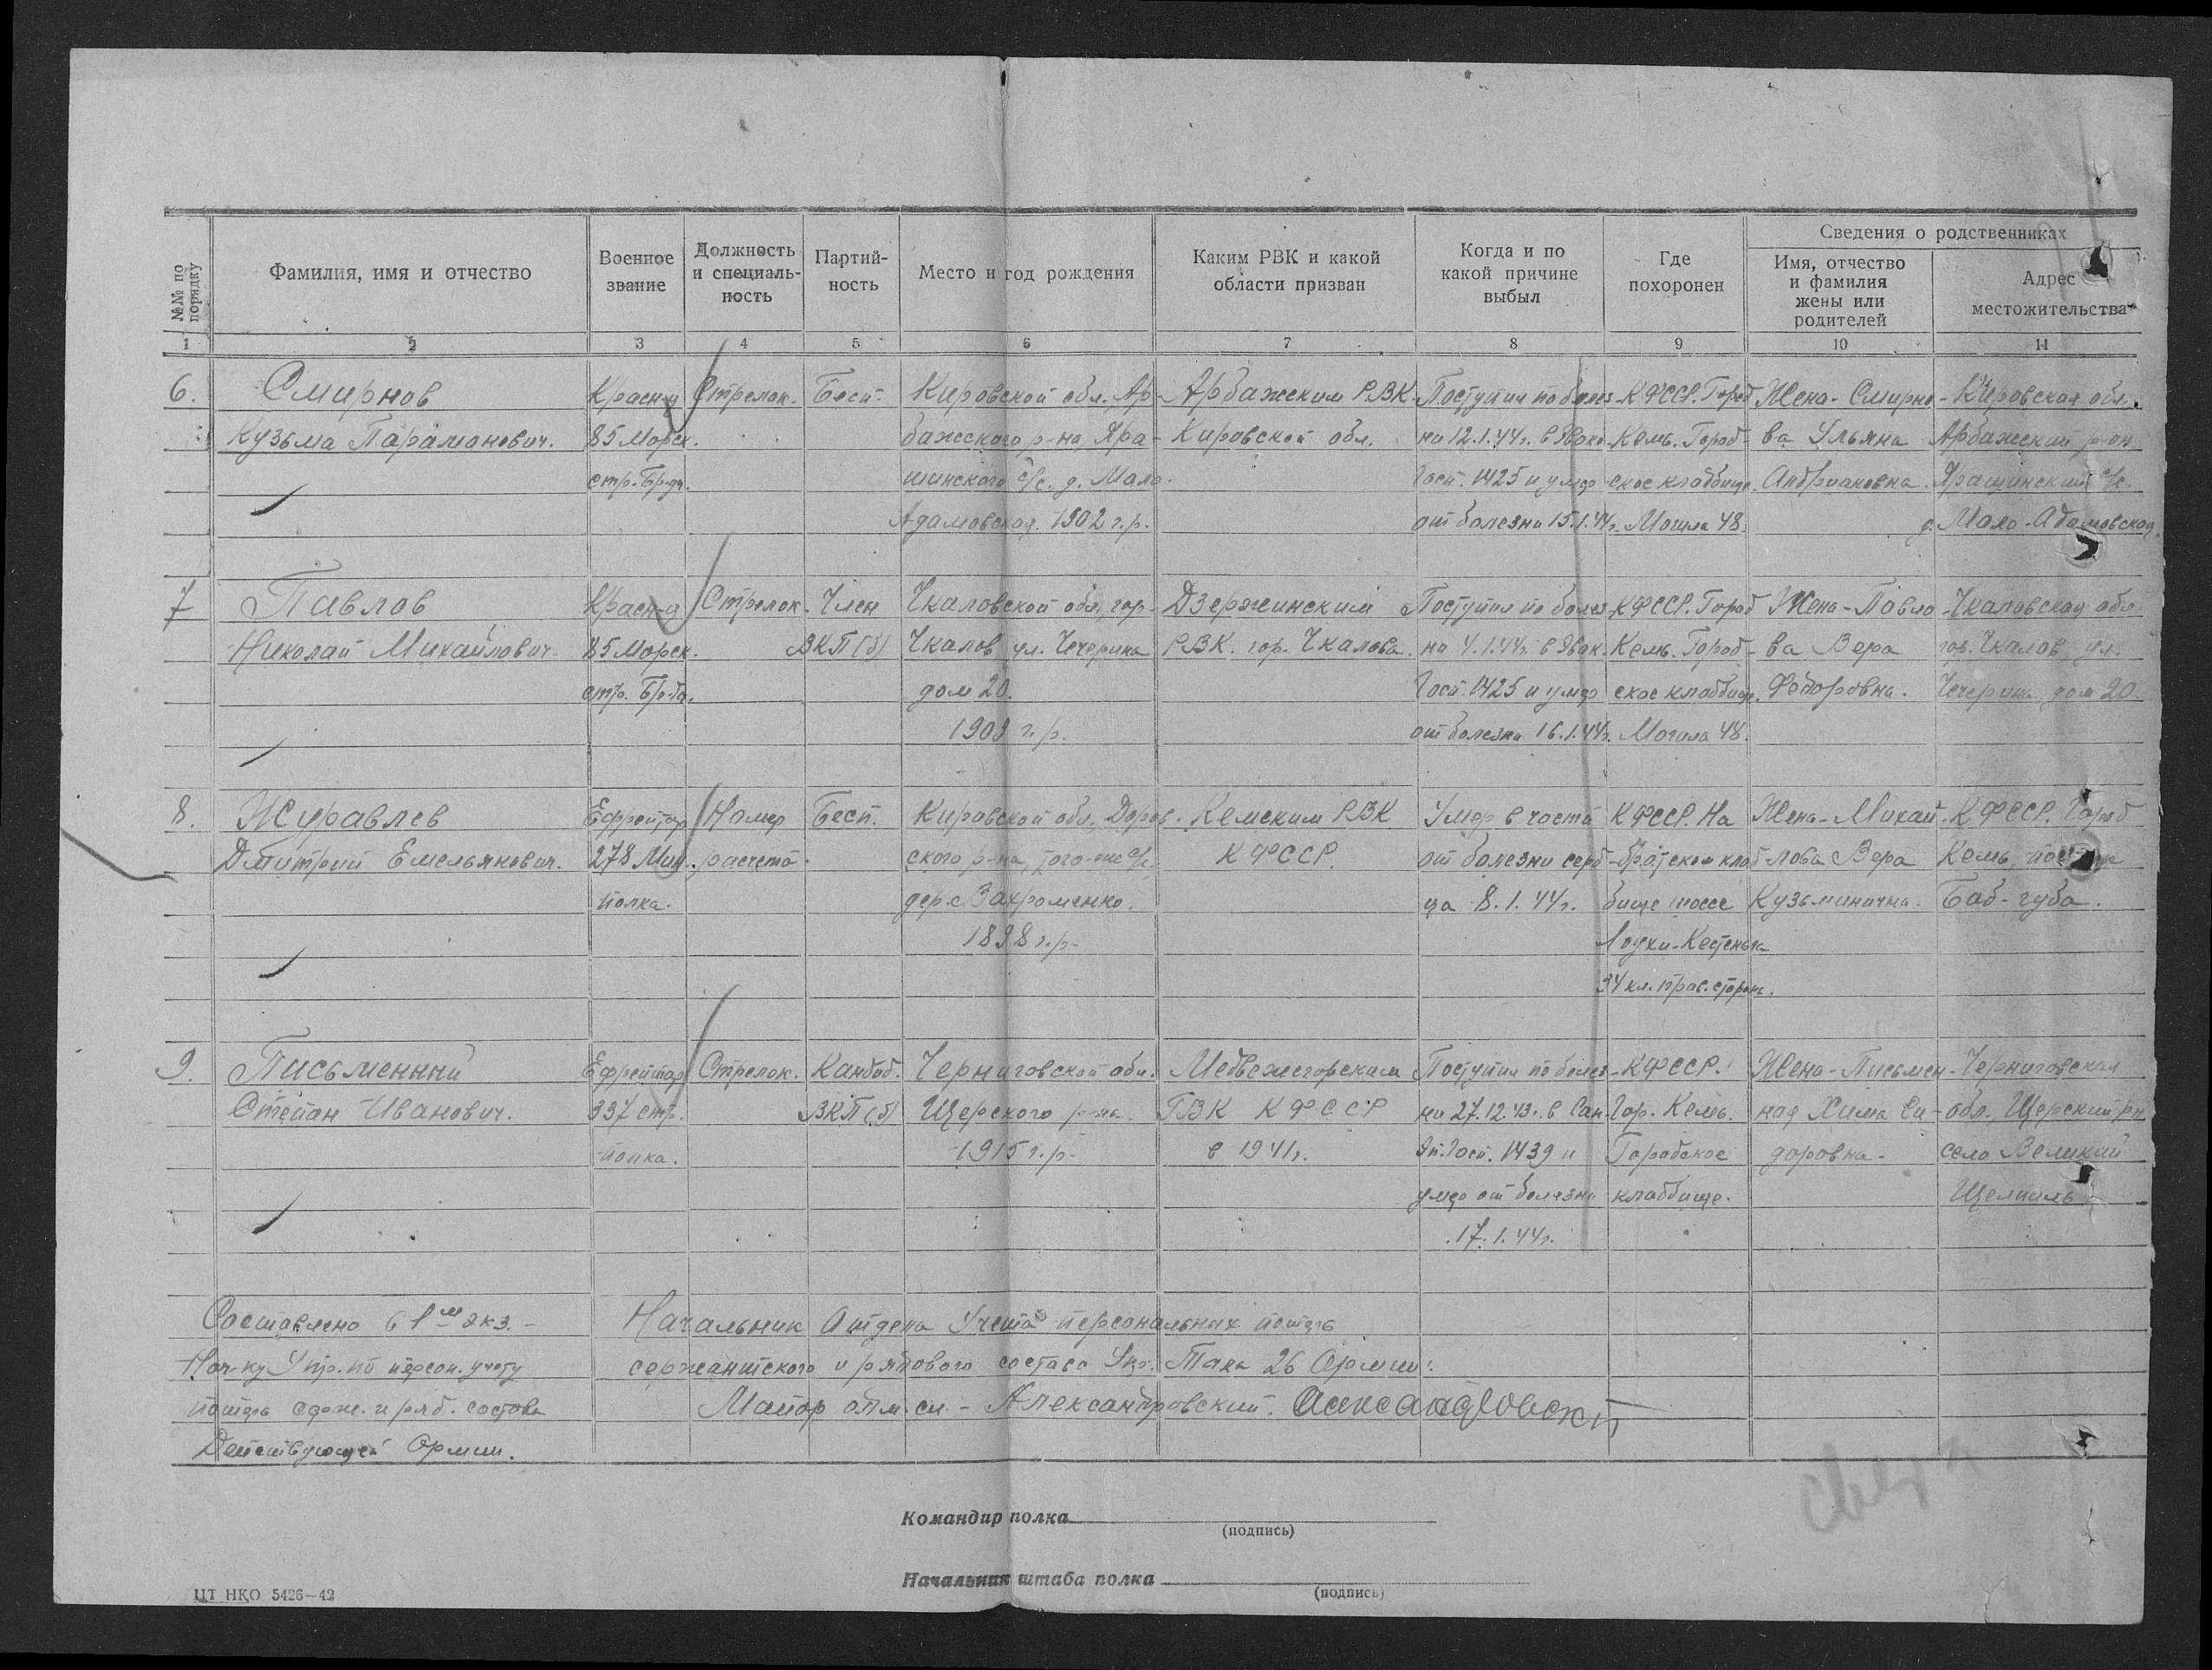 №№ по порядку
Фамилия, имя и отчество
Военное звание
Должность и специальность
Партийность
Место и год рождения
Каким РВК и какой области призван
Когда и по какой причине выбыл
Где похоронен
Сведения о родственниках
Имя, отчество и фамилия жены или родителей
Адрес местожительства
1 2 3 4 5 6 7 8 9 10 11
6. Смирнов Красн-ц Стрелок. Бесп. Кировской обл. Ар- Арбажским РВК Поступил по болез- КФССР. Город Жена - Смирно- Кировская обл.
Кузьма Парамонович. 85 Морск. бажского р-на, Яра- Кировской обл. на 12.1.44г. в Эвако- Кемь. Город- ва Ульяна Арбажский р-он
стр. Бр-да. шинского с/с. д. Мало- Госп. 1425 и умер ское кладбище. Андриановна. Ярашинский с/с.
Адамовская. 1902 г.р. от болезни 15.1.44г. Могила 48. д. Мало-Адамовская.
7 Павлов Красн-ц Стрелок. Член Чкаловской обл., гор. Дзержинским Поступил по болез- КФССР. Город Жена - Павло- Чкаловская обл.
Николай Михайлович. 85 Морск. ВКП(б) Чкалов ул. Чечерина РВК. гор. Чкалова. на 4.1.44г. в Эвак. Кемь. Город- ва Вера гор. Чкалов, ул.
стр. Бр-да. дом 20. Госп. 1425 и умер ское кладбище. Федоровна. Чечерина дом 20.
1909 г.р. от болезни 16.1.44г. Могила 48.
8. Журавлев Ефрейтор Номер Бесп. Кировской обл., Доров- Кемским РВК Умер в части КФССР. На Жена - Михай- КФССР. Город
Дмитрий Емельянович. 278 Мин. расчета. ского р-на, того-же с/с. КФССР. от болезни серд- братском клад- лова Вера Кемь,
полка. дер. Вахроменко. ца 8.1.44г. бище шоссе Кузьминична. губа.
1898 г.р. Лоухи-Кестеньга
34 кл. прав. сторон.
9. Письменный Ефрейтор Стрелок. Кандид. Черниговской обл. Медвежегорским Поступил по болез- КФССР. Жена - Письмен- Черниговская
Степан Иванович. 337 стр. ВКП(б) Щорского р-на. РВК КФССР на 27.12.43г. в Сан. Гор. Кемь. ная Хима обл., Щорский р-н
полка. 1915 г.р. в 1941г. Эп. Госп. 1439 и Городское доровна. село Великий
умер от болезни кладбище. Щелиль
17.1.44г.
Составлено в 1ом экз. - Начальник Отдела Учета персональных потерь
Нач-ку Упр. по персон. учету сержантского и рядового состава Укр. Тыла 26 Армии:
потерь серж. и ряд. состава Майор адм. сл. - Александровский. Александровский
Действующей Армии.
Командир полка
(подпись)
Начальник штаба полка
(подпись)
ЦТ НКО 5426—42